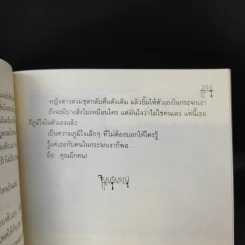 หญิงสาวสวมชุดกลับคืนดังเดิม แล้วยิ้มให้ตัวเองในกระจกเงา
ถึงจะมีบางสิ่งไม่เหมือนใคร แต่มั่นใจว่าไม่ใช่คนเลว แค่นี้เธอ
ก็ภูมิใจในตัวเองแล้ว
เป็นความภูมิใจเล็กๆ ที่ไม่ต้องบอกให้ใครรู้
รู้แค่เธอกับคนในกระจกเงาก็พอ...
อ้อ...คุณอีกคน!